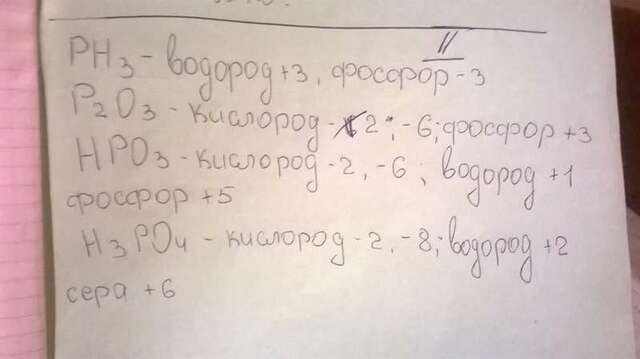 II
PH3 - водород +3, фосфор - 3
P2O3 - кислород - 2, -6; фосфор +3
HPO3 - кислород -2, -6; водород +1
фосфор +5
H3PO4 - кислород -2, -8; водород +2
сера +6